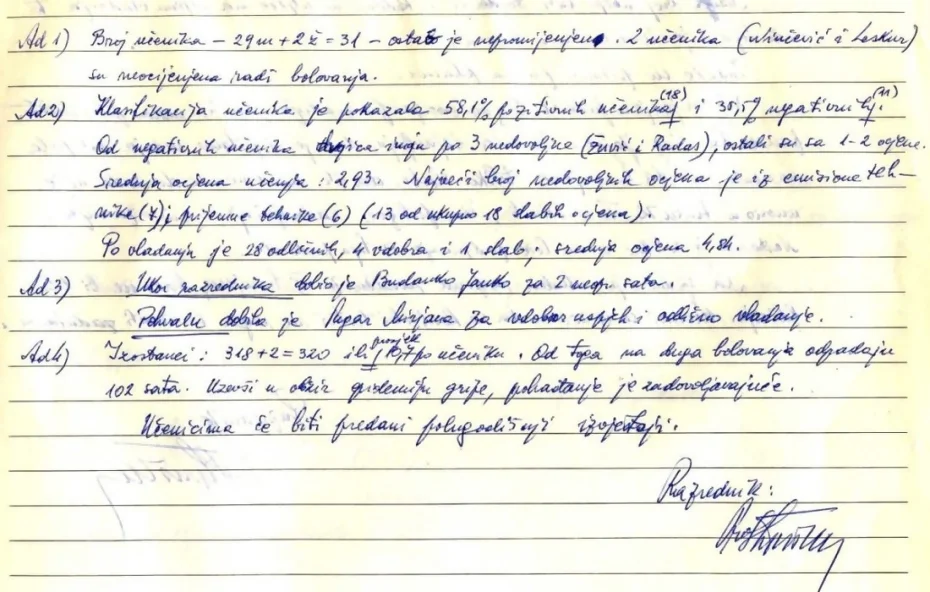 Ad 1) Broj učenika – 29m + 2ž = 31 – ostao je nepromijenjen. 2 učenika (Ninčević i Leskur)
su neocijenjena radi bolovanja.
Ad 2) Klasifikacija učenika je pokazala 58,1% pozitivnih učenika (18) i 35,5% negativnih (11).
Od negativnih učenika dvojica imaju po 3 nedovoljne (Zuvić i Radas), ostali su sa 1-2 ocjene.
Srednja ocjena učenja: 2,93. Najveći broj nedovoljnih ocjena je iz emisione teh-
nike (7) i prijemne tehnike (6) (13 od ukupno 18 slabih ocjena).
Po vladanju je 28 odličnih, 4 vdobra i 1 slab; srednja ocjena 4,84.
Ad 3) Ukor razrednika dobio je Budanko Janko za 2 neopr. sata.
Pohvalu dobila je Mirjana za vdobar uspjeh i odlično vladanje.
Ad 4) Izostanci: 318 + 2 = 320 ili prosjek 10,7 po učeniku. Od toga na duga bolovanja odpadaju
102 sata. Uzevši u obzir epidemiju gripe, pohađanje je zadovoljavajuće.
Učenicima će biti predani polugodišnji izvještaji.
Razrednik: